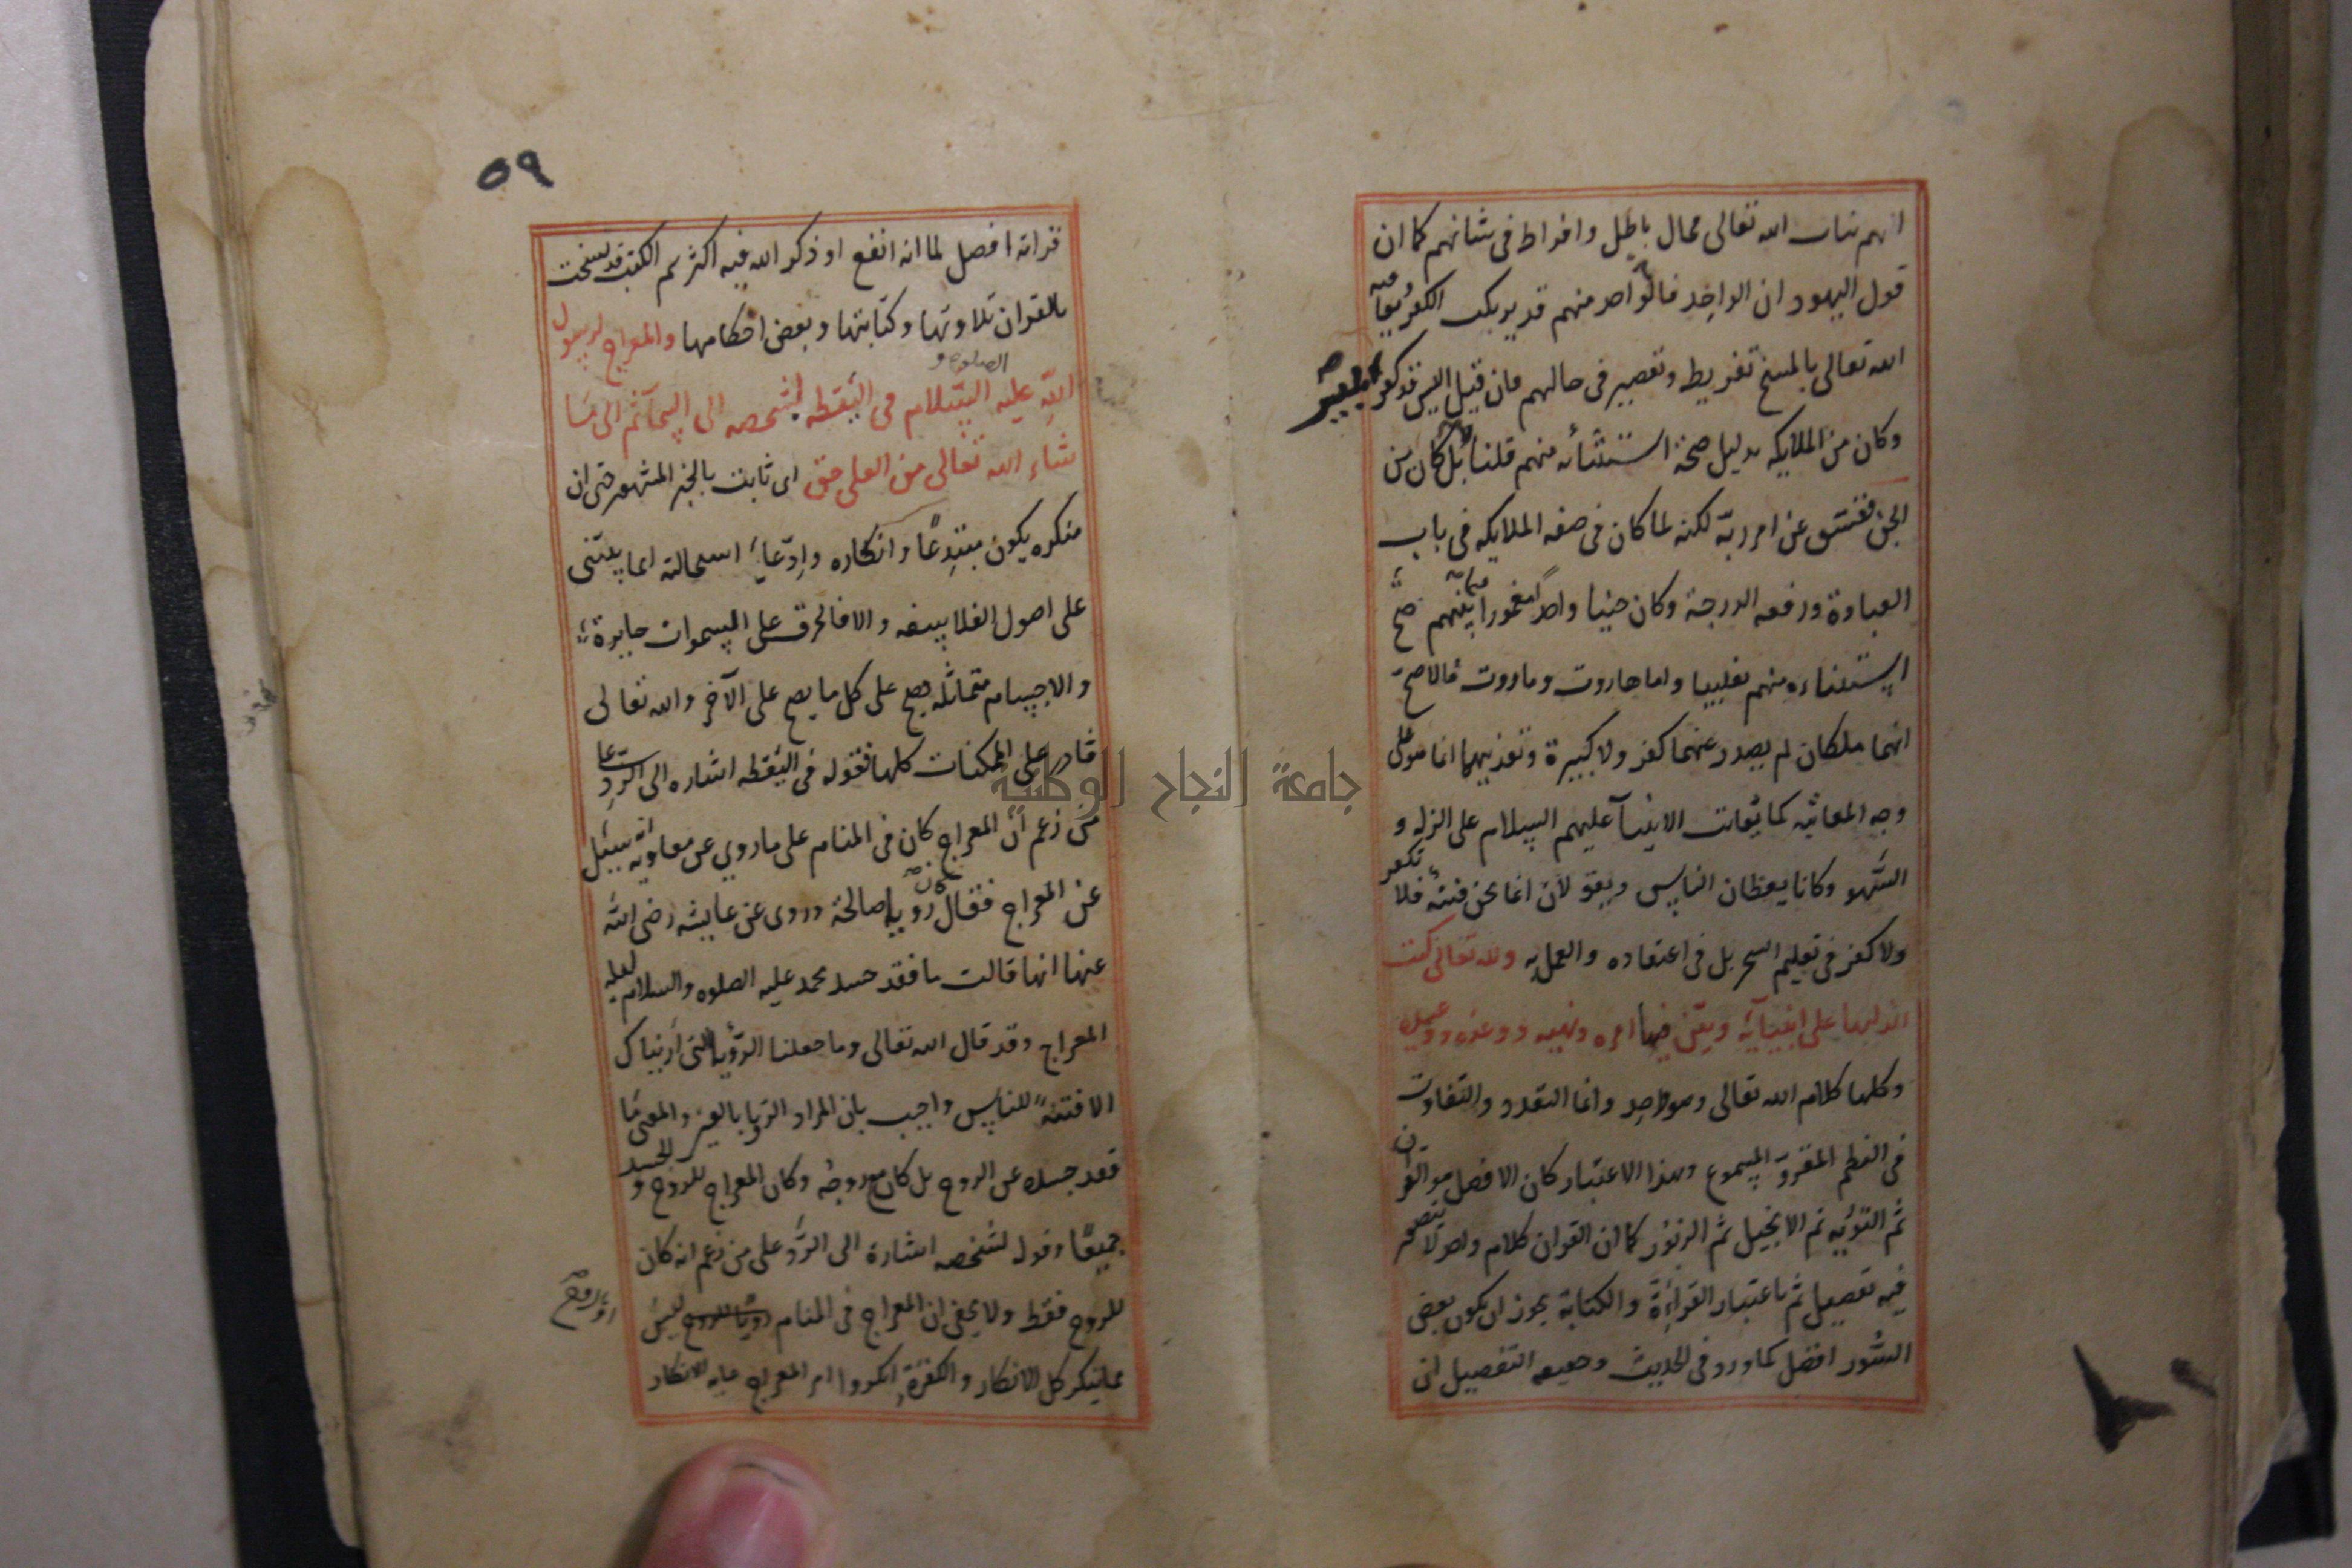 انهم بنات الله تعالى محال باطل وافراط فى شانهم كما ان
قول اليهود ان الواحد فالواحد منهم قد يرتكب الكفر ويعاقبه
الله تعالى بالمسخ تفريط وتقصير فى حالهم فان قيل اليس قد كفر ابليس
وكان من الملايكه بدليل صحة استثنائه منهم قلنا لا بل كان من
الجن ففسق عن امر ربه لكنه لما كان فى صفه الملايكه فى باب
العبادة ورفعه الدرجة وكان جنيا واحدا مغمورا فيما بينهم صح
استثناءه منهم تغليبا واما هاروت وماروت فالاصح
انهما ملكان لم يصدر عنهما كفر ولا كبيرة وتعذيبهما انما هو على
وجه المعاتبه كما يعاتب الانبيآ عليهم السلام على الزله و
السهو وكانا يعظان الناس ويقولان انما نحن فتنة فلا تكفر
ولا كفر فى تعليم السحر بل فى اعتقاده والعمل به ولله تعالى كتب
انزلها على انبيايه وبين فيها امره ونهيه ووعده ووعيده
وكلها كلام الله تعالى وهو واحد وانما التعدد والتفاوت
فى النظم المقرو المسموع وبهذا الاعتبار كان الافضل هو القران
ثم التوريه ثم الانجيل ثم الزبور كما ان القران كلام واحد لا يتصور
فيه تفضيل ثم باعتبار القراءة والكتابة يجوز ان يكون بعض
السور افضل كما ورد فى الحديث وحقيقه التفضيل ان
٥٩
قراته افضل لما انه انفع او ذكر الله فيه اكثر ثم الكتب قد نسخت
بالقران تلاوتها وكتابتها وبعض احكامها والمعراج لرسول
الصلوه و
الله عليه السلام فى اليقظه بشخصه الى السمآ ثم الى مَا
شاء الله تعالى من العلى حق اى ثابت بالخبر المشهور حتى ان
منكره يكون مبتدعًا وانكاره وادعاء استحالته انما يبتنى
على اصول الفلاسفه والا فالخرق على السموات جايزة
والاجسام متماثله يصح على كل ما يصح على الآخر والله تعالى
قادر على الممكنات كلها فقوله فى اليقظه اشاره الى الرد على
من زعم ان المعراج كان فى المنام على ما روي عن معاويه انه سئل
عن المعراج فقال كان رويا صالحة وروى عن عايشه رضى الله
عنها انها قالت ما فقد جسد محمد عليه الصلوه والسلام ليله
المعراج وقد قال الله تعالى وما جعلنا الرؤيا التى اريناك
الا فتنة للناس واجيب بان المراد الرويا بالعين والمعنى مَا
فقد جسده عن الروح بل كان مع روحه وكان المعراج للروح و الجسد
جميعًا وقوله لشخصه اشارة الى الرد على من زعم انه كان
للروح فقط ولا يخفى ان المعراج فى المنام او بالروح ليس
مما ينكر كل الانكار والكفرة انكروا امر المعراج غايه الانكار
جامعة النجاح الوطنية